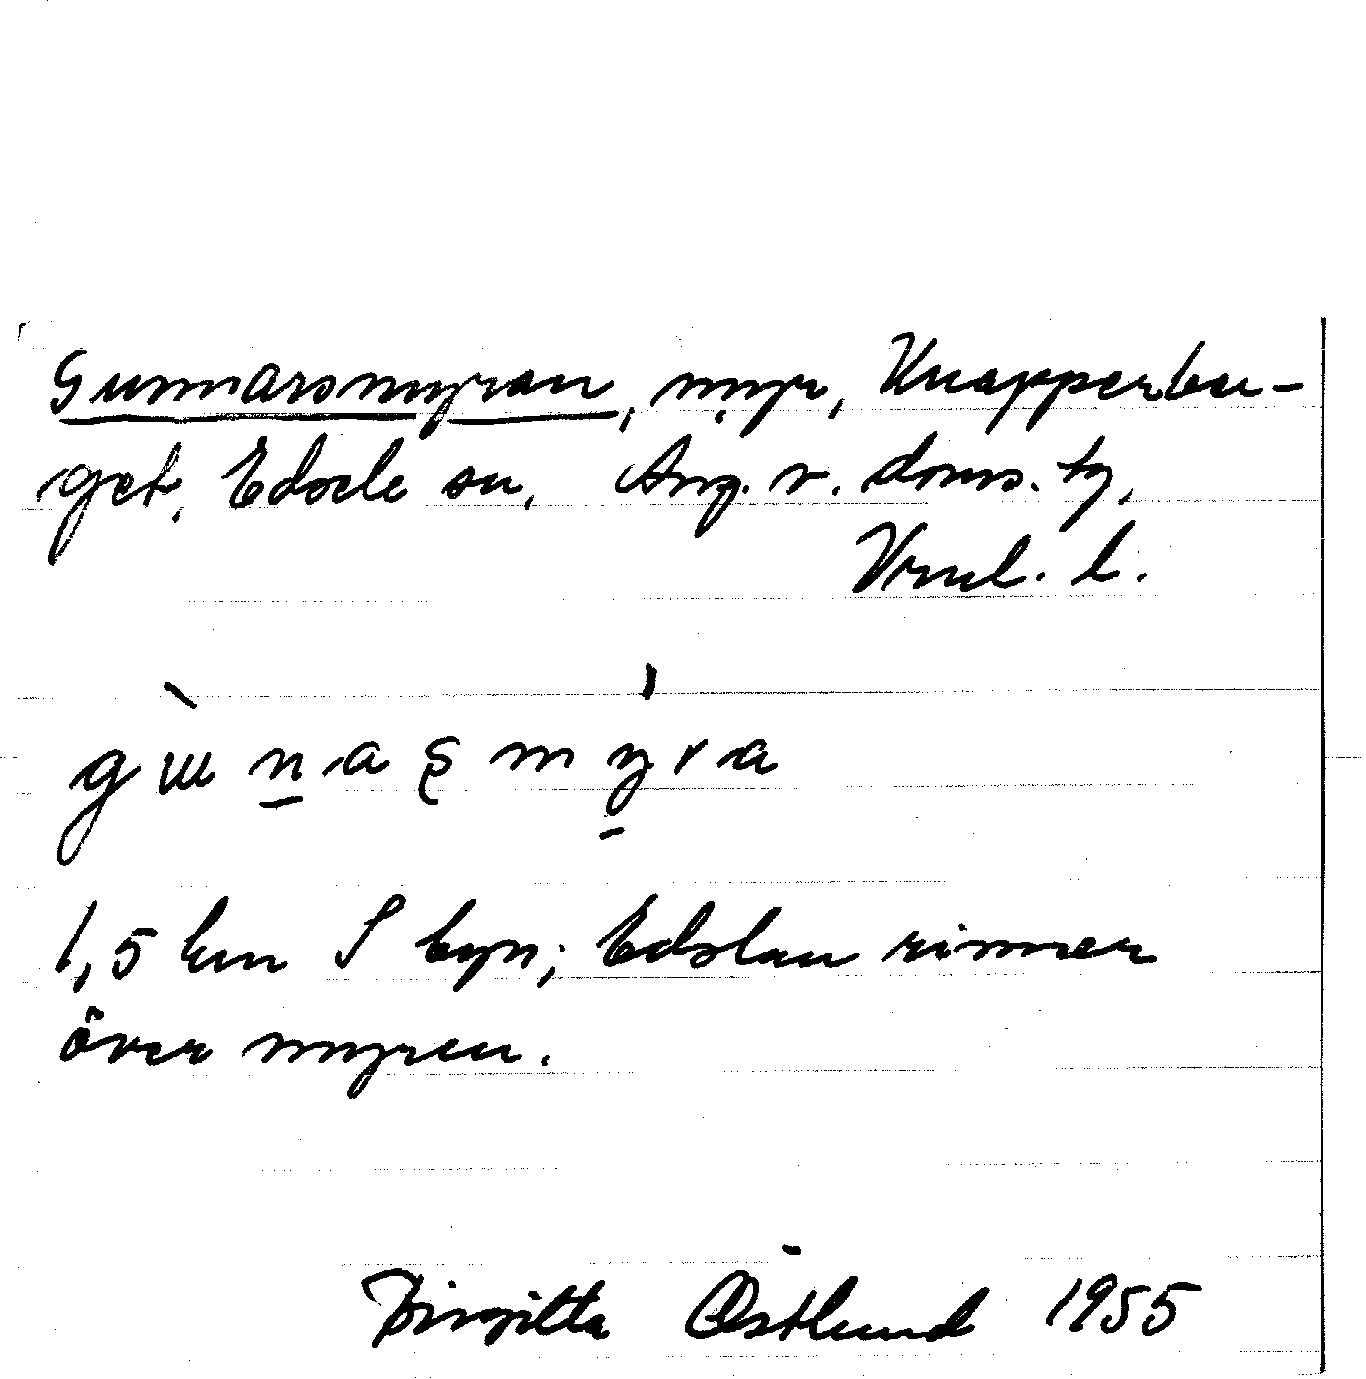 Gunnarsmyran, myr, Knapperbu-
get, Edsele sn, Ång. v. doms. tg,
Vrml. l.
1,5 km S byn; Edslan rinner
över myren.
Birgitta Östlund 1955